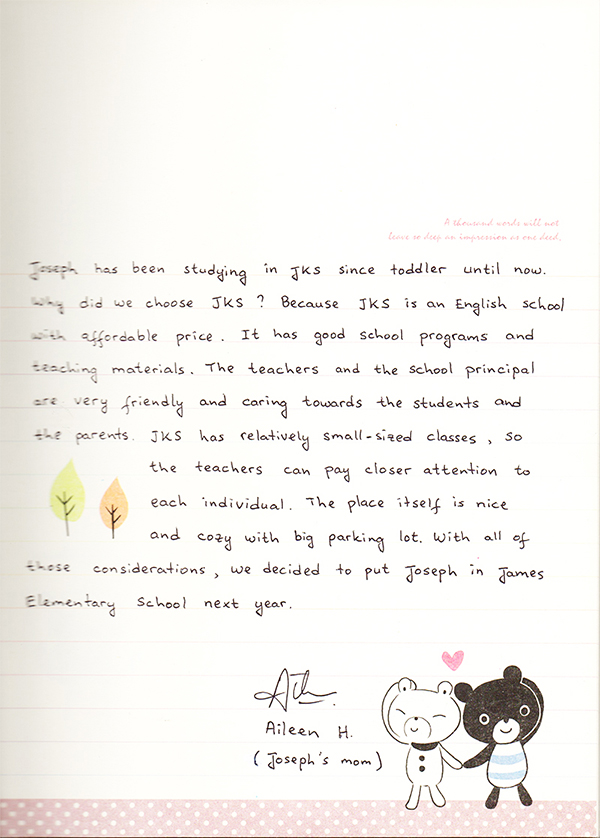 A thousand words will not
leave so deep an impression as one deed.
Joseph has been studying in JKS since toddler until now.
Why did we choose JKS ? Because JKS is an English school
with affordable price. It has good school programs and
teaching materials. The teachers and the school principal
are very friendly and caring towards the students and
the parents. JKS has relatively small-sized classes, so
the teachers can pay closer attention to
each individual. The place itself is nice
and cozy with big parking lot. With all of
those considerations, we decided to put Joseph in James
Elementary School next year.
Aileen H.
(Joseph's mom)